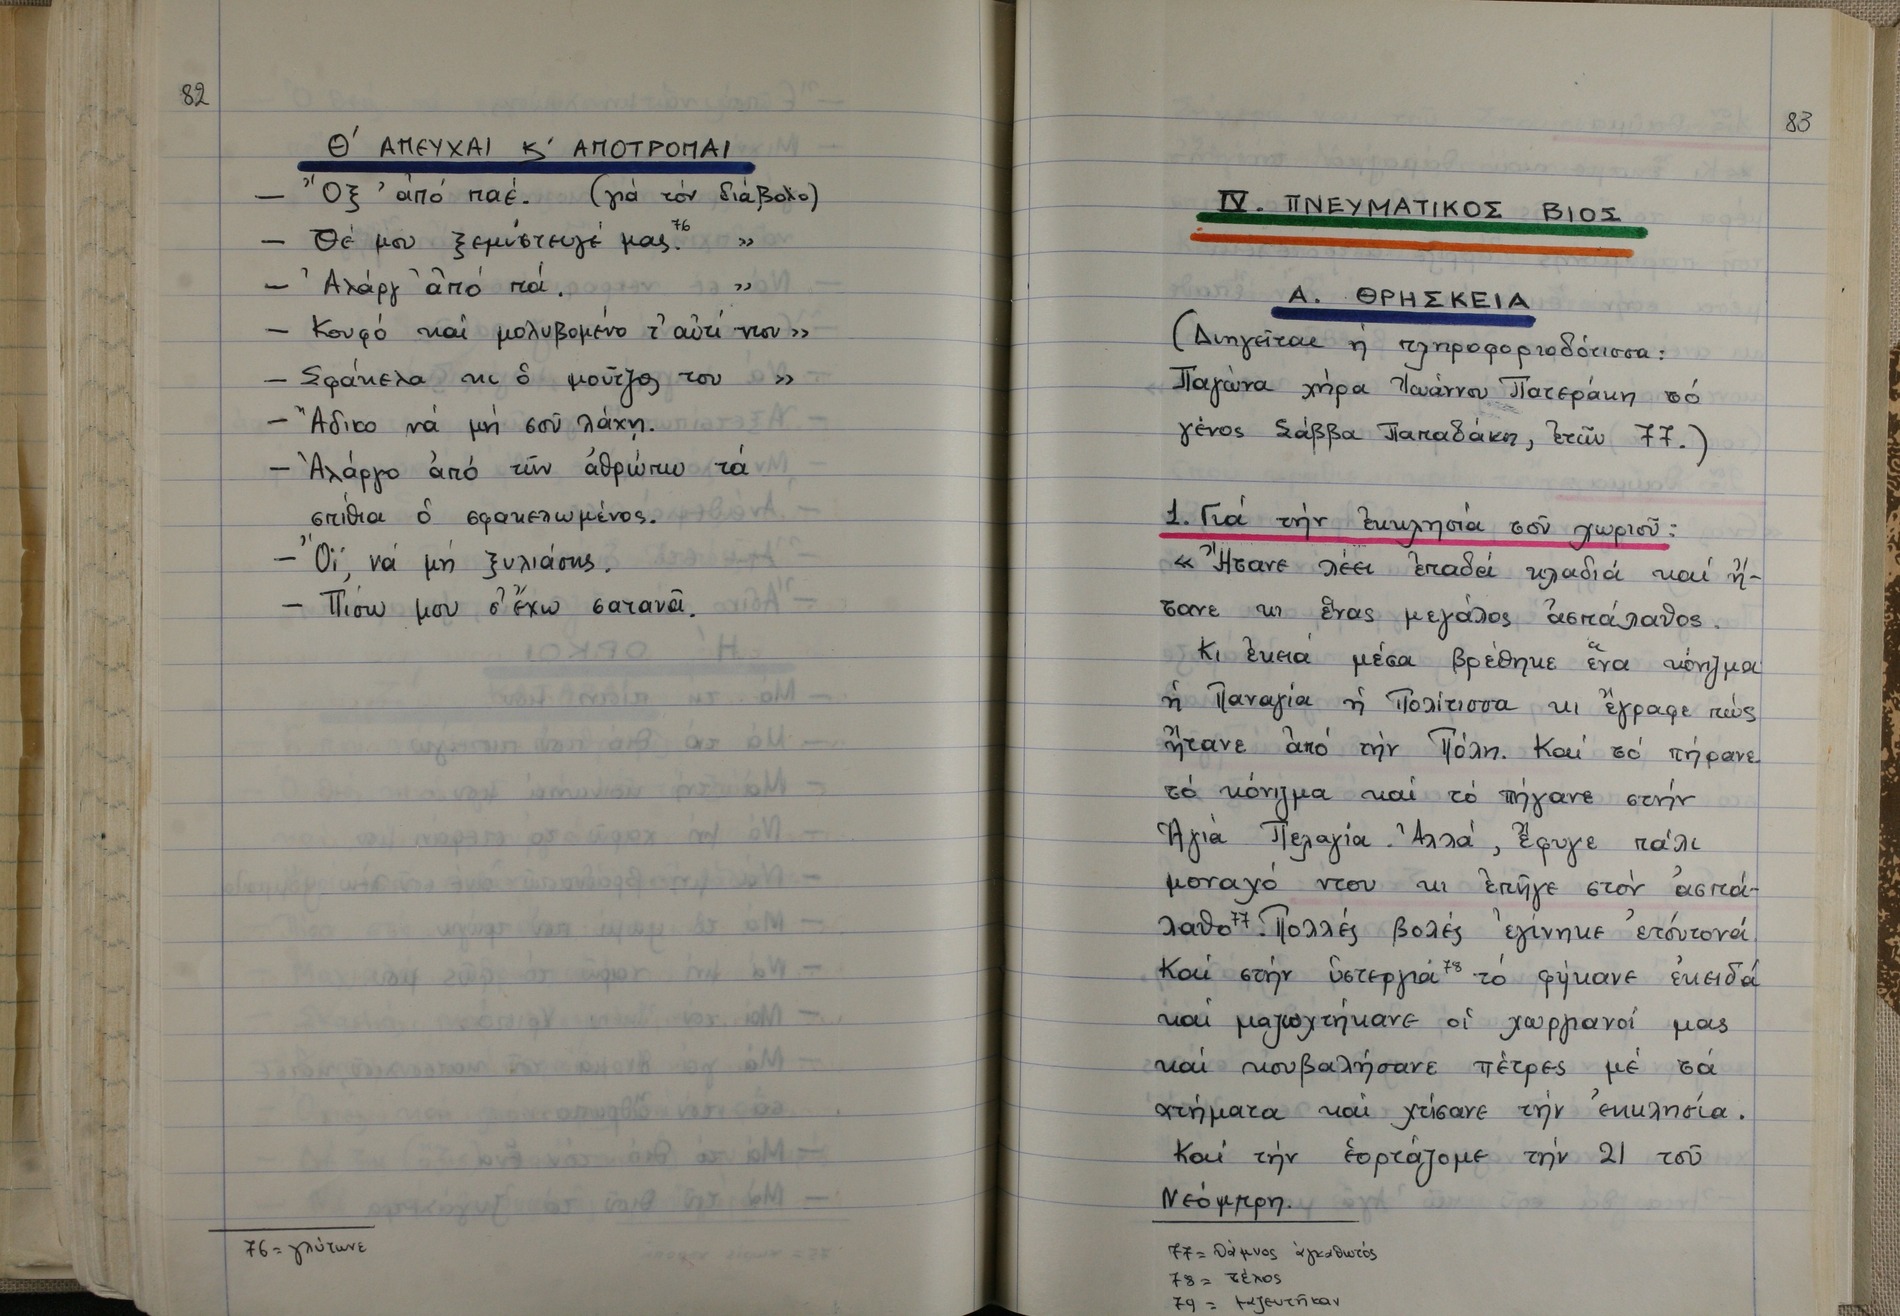 82
Θ΄ ΑΠΕΥΧΑΙ Κ΄ ΑΠΟΤΡΟΠΑΙ
— Ὄξ' ἀπό παέ. (γιά τόν διάβολο)
— Θέ μου ξεμίστευγέ μας.76 »
— Ἀλάργ' ἀπό πά. »
— Κουφό καί μολυβομένο τ' αὐτί ντου »
— Σφάκελα κι ὁ μοῦτζος του »
— Ἄδικο νά μή σοῦ λάχῃ.
— Ἀλάργο ἀπό τῶν ἀθρώπω τά
σπίθια ὁ σφακελωμένος.
— Ὄϊ, νά μή ξυλιάσῃς.
— Πίσω μου σ' ἔχω σατανᾶ.
76 = γλύτωνε
83
IV. ΠΝΕΥΜΑΤΙΚΟΣ ΒΙΟΣ
Α. ΘΡΗΣΚΕΙΑ
(Διηγεῖται ἡ πληροφοριοδότισσα:
Παγώνα χήρα Ἰωάννου Πατεράκη τό
γένος Σάββα Παπαδάκη, ἐτῶν 77.)
1. Γιά τήν ἐκκλησιά τοῦ χωριοῦ:
« Ἤτανε λέει ἐπαδεί κλαδιά καί ἤ-
τανε κι ἕνας μεγάλος ἀσπάλαθος.
Κι ἐκειά μέσα βρέθηκε ἕνα κόνιζμα
ἡ Παναγία ἡ Πολίτισσα κι ἔγραφε πώς
ἤτανε ἀπό τήν Πόλη. Καί τό πήρανε
τό κόνιζμα καί τό πήγανε στήν
Ἁγιά Πελαγία. Ἀλλά, ἔφυγε πάλι
μοναχό ντου κι ἐπῆγε στόν ἀσπά-
λαθο77. Πολλές βολές ἐγίνηκε ἐτόυτονά
Καί στήν ὑστεργιά78 τό φήκανε ἐκειδά
καί μαζωχτήκανε οἱ χωργιανοί μας
καί κουβαλήσανε πέτρες μέ τά
χτήματα καί χτίσανε τήν ἐκκλησία.
Καί τήν ἑορτάζομε τήν 21 τοῦ
Νεόμπρη.
77 = θάμνος ἀγκαθωτός
78 = τέλος
79 = μαζευτῆκαν